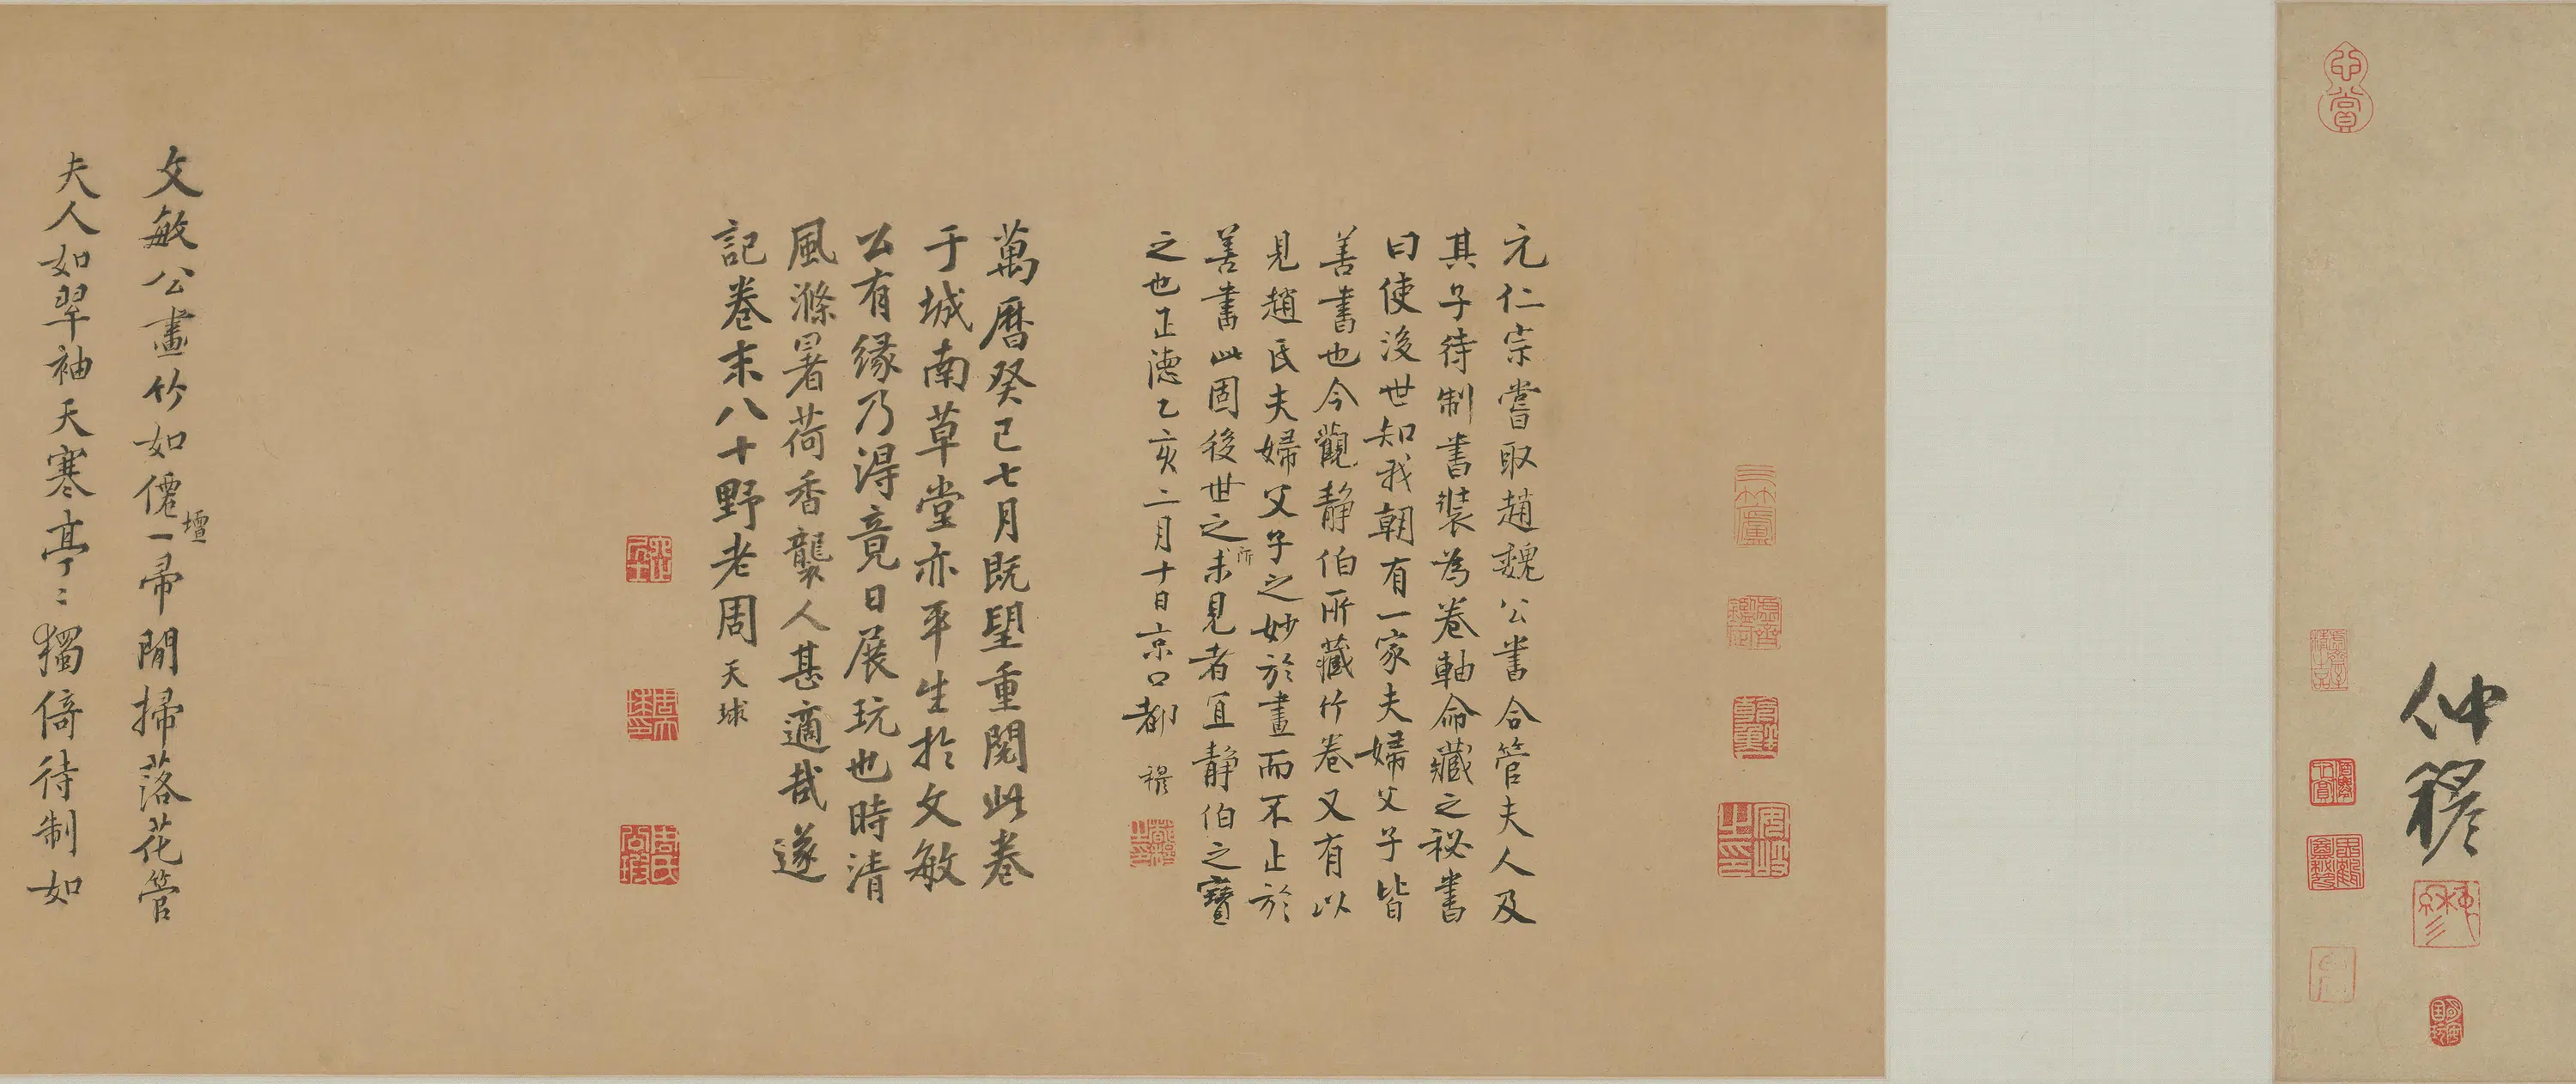 仲穆
元仁宗嘗取趙魏公書合管夫人及
其子待制書裝為卷軸命藏之祕書
曰使後世知我朝有一家夫婦父子皆
善書也今觀靜伯所藏竹卷又有以
見趙氏夫婦父子之妙於畫而不止於
善書此固後世之所未見者宜靜伯之寶
之也正德乙亥二月十日京口都穆
萬曆癸巳七月既望重閱此卷
于城南草堂亦平生於文敏
公有緣乃得竟日展玩也時清
風滌暑荷香襲人甚適哉遂
記卷末八十野老周天球
文敏公畫竹如僊壇一帚閒掃落花管
夫人如翠袖天寒亭亭獨倚待制如